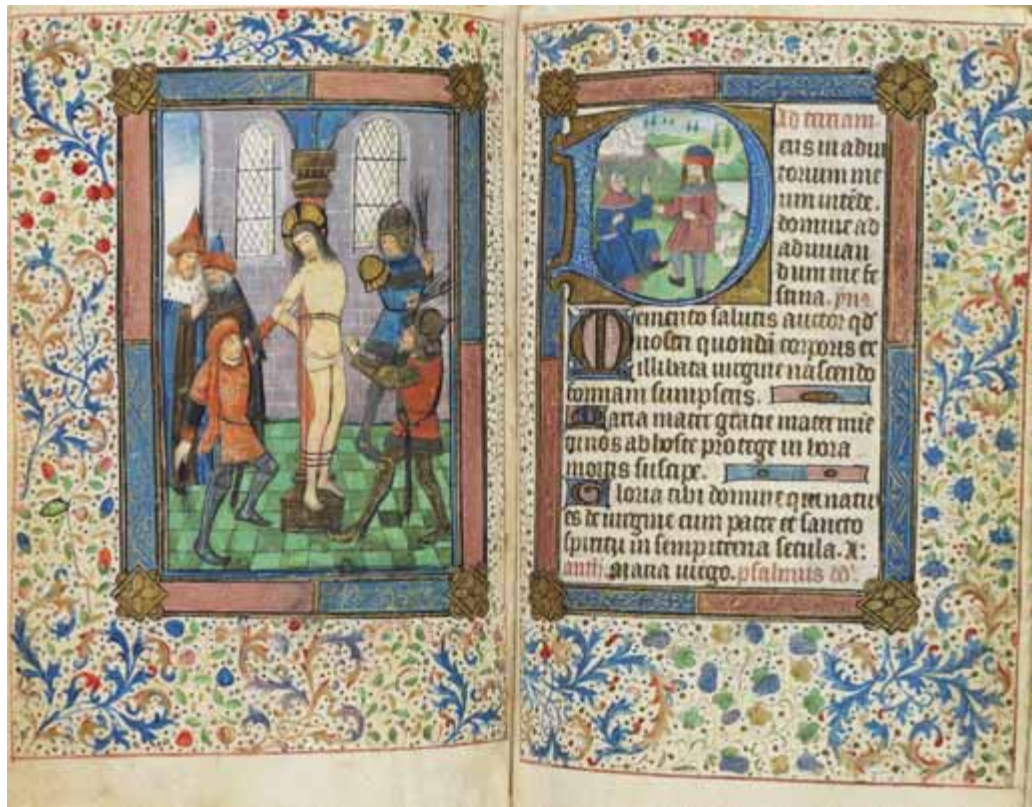 Ad terciam
Deus in adiu
torium me
um intēde.
domine ad
adiuuan
dum me fe
stina. yn̄s
Memento salutis auctor qd
nostri quondā corporis ex
illibata uirgine nascendo
formam sumpseris.
Maria mater gracie mater mie
ab hoste protege in hora
mortis suscipe.
Gloria tibi domine qui natus
es de uirgine cum patre et sancto
spiritu in sempiterna secula. A:
Maria uirgo. psalmus